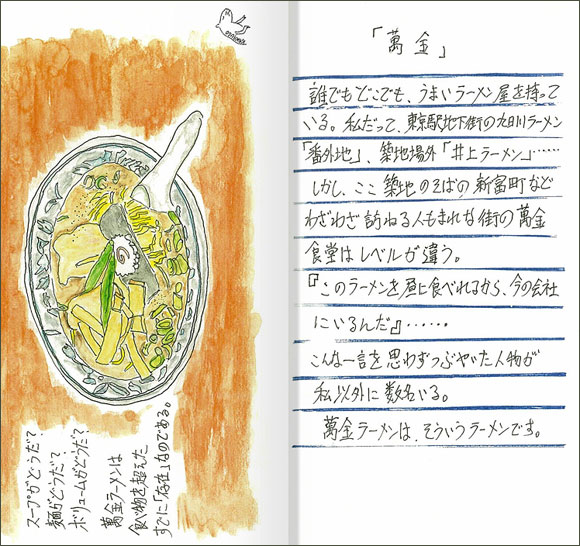 スープがどうだ?
麺がどうだ?
ボリュームがどうだ?
萬金ラーメンは
食べ物を超えた
すでに「存在」なのである。
「萬金」
誰でもどこでも、うまいラーメン屋を持って
いる。私だって、東京駅地下街の旭川ラーメン
「番外地」、築地場外「井上ラーメン」……
しかし、ここ築地のそばの新富町など
わざわざ訪ねる人もまれな街の萬金
食堂はレベルが違う。
『このラーメンを昼食べれるから、今の会社
にいるんだ』……
こんな一言を思わずつぶやいた人物が
私以外に数名いる。
萬金ラーメンは、そういうラーメンです。